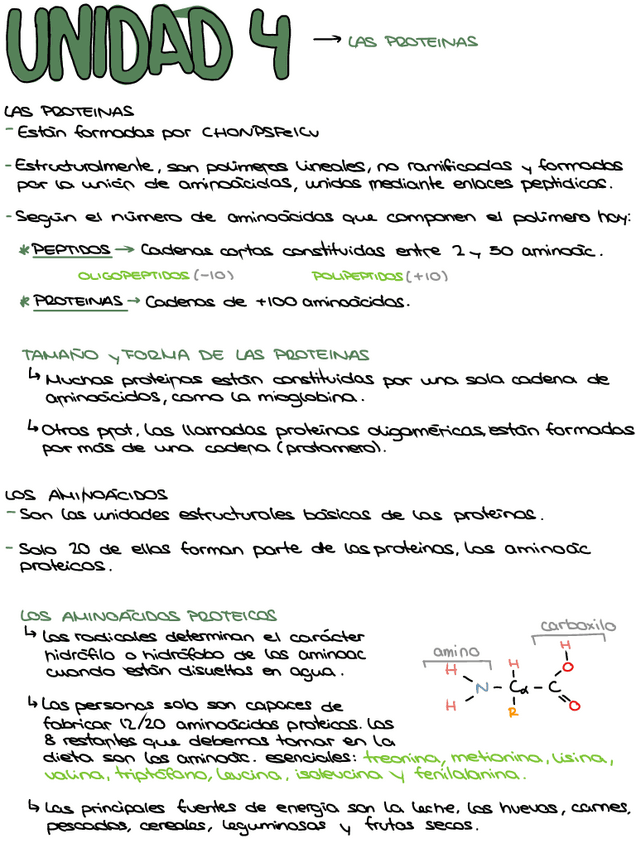 UNIDAD 4 → LAS PROTEINAS
LAS PROTEINAS
- Están formadas por CHONPSFeICu
- Estructuralmente, son polímeros lineales, no ramificadas y formadas
por la unión de aminoácidos, unidos mediante enlaces peptidicos.
- Según el número de aminoácidos que componen el polímero hay:
* PEPTIDOS → Cadenas cortas constituidas entre 2 y 50 aminoác.
OLIGOPEPTIDOS (-10) POLIPEPTIDOS (+10)
* PROTEINAS → Cadenas de +100 aminoácidos.
TAMAÑO y FORMA DE LAS PROTEINAS
↳ Muchas proteinas están constituidas por una sola cadena de
aminoácidos, como la mioglobina.
↳ Otras prot, las llamadas proteínas oligoméricas, están formadas
por más de una cadena (protomero).
LOS AMINOÁCIDOS
- Son las unidades estructurales básicas de las proteínas.
- Solo 20 de ellos forman parte de las proteinas, los aminoác
proteicos.
LOS AMINOÁCIDOS PROTEICOS
↳ Los radicales determinan el carácter
hidrófilo o hidrófobo de los aminoac
cuando están disueltos en agua.
carboxilo
amino
H H H O
N - Cα - C
H R O
↳ Las personas solo son capaces de
fabricar 12/20 aminoácidos proteicos. Los
8 restantes que debemos tomar en la
dieta son los aminoác. esenciales: treonina, metionina, lisina,
valina, triptófano, leucina, isoleucina y fenilalanina.
↳ Las principales fuentes de energía son la leche, los huevos, carnes,
pescados, cereales, leguminosas y frutos secos.